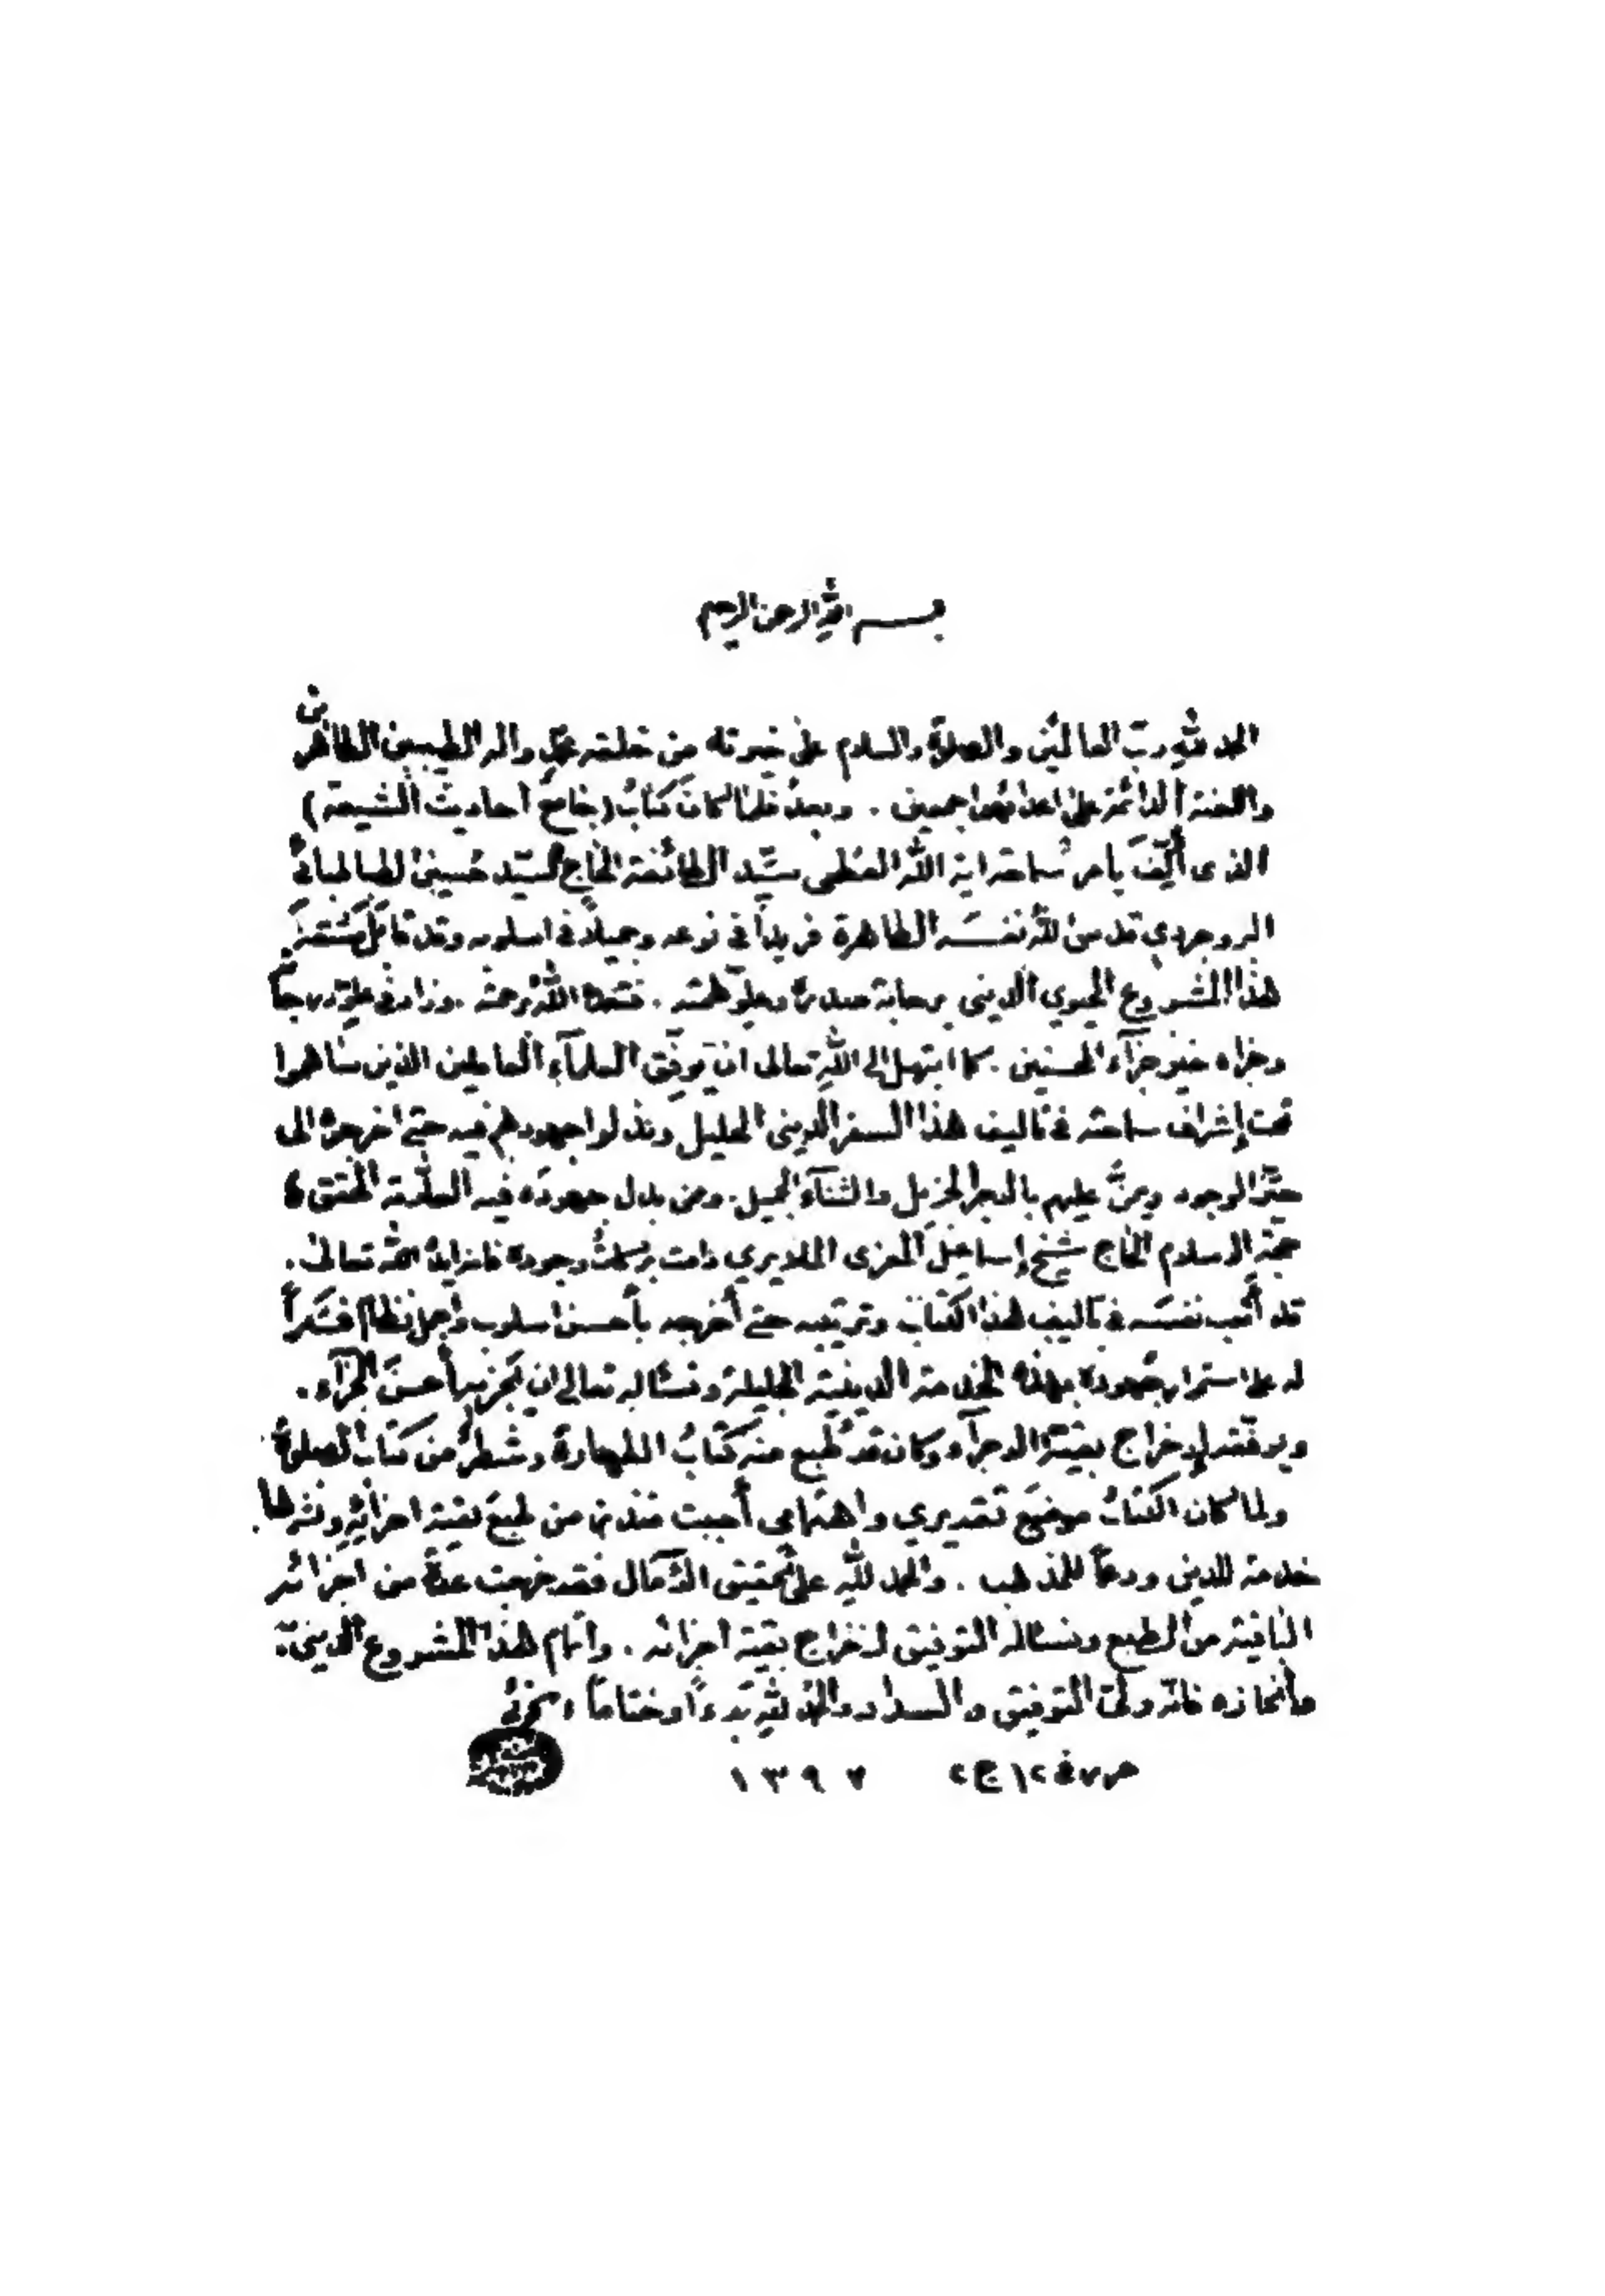 بسم الله الرحمن الرحيم
الحمد لله ربّ العالمين والصلاة والسلام على خيرته من خلقه محمّد واله الطيبين الطاهرين
واللعنة الدائمة على اعدائهم اجمعين . وبعدُ فلما كان كتابُ (جامعُ أحاديث الشيعة)
الذى أُلِّفَ بأمر سماحة اية الله العظمى سيّد الطائفة الحاج السيّد حُسين الطباطبائى
البروجردي قدس الله نفسَه الطاهرة فريداً في نوعه وجميلاً في اسلوبه وقد
هذا المشروع الحيوي الدينى برحابة صدره وعلوّ همّته . فتغمده اللهُ برحمته . وزاد في علوّ درجاته
وجزاه خير جزآء المحسنين . كما ابتهل الى اللهِ تعالى ان يوفّق العلمآء العاملين الذين ساهموا
تحت إشراف سماحته في تأليف هذا السفر الدينى الجليل وبذلوا جهودهم فيه حتى اخرجوه الى
حيّز الوجود ويمنَّ عليهم بالاجر الجزيل والثنآء الجميل . وممن بذل جهوده فيه العلّامة المحقق
حجة الاسلام الحاج شيخ إسماعيل المعزى الملايري دامت بركاتُ وجوده فانه ايده الله تعالى .
قد أتعب نفسَه في تأليف هذا الكتاب وترتيبه حتى أخرجه بأحسن اسلوب وأجمل نظام فشكراً
له على استمرار جُهوده بهذه الخدمة الدينية الجليلة ونسأله تعالى ان يجزيه أحسنَ الجزآء .
ويوفقه لإخراج بقيّة الاجزآء وكان قد طُبع منه كتابُ الطهارة وشطرٌ من كتاب الصلوة
ولما كان الكتابُ موضعَ تقديري واهتمامي أحببت من طبع بقية اجزائِهِ ونشرها
خدمة للدين ودعماً للمذهب . والحمد للهِ على تحقيق الآمال فقد خرجت عدةٌ من اجزائه
الباقية من الطبع ونسأله التوفيق لاخراج بقية اجزائه . وإتمام هذا المشروع الدينىّ
وانجازه فانه ولىّ التوفيق والسداد والحمد للهِ بَدءاً وختاماً
حرر في ١٢ ج ٢ ١٣٩٧